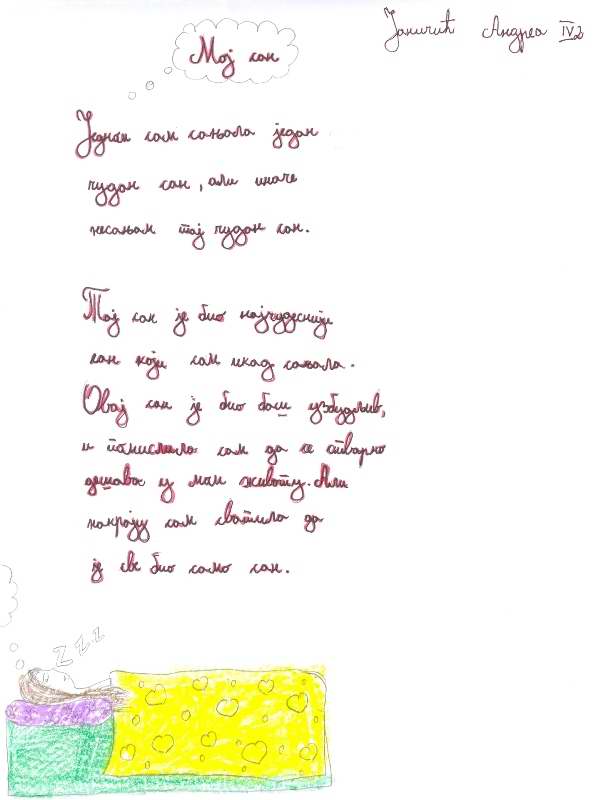 Јаничић Андреа IV2
Мој сан
Једном сам сањала један
чудан сан, али иначе
несањам тај чудан сан.
Тај сан је био најчудеснији
сан који сам икад сањала.
Овај сан је био баш узбудљив,
и помислила сам да се стварно
дешава у мом животу. Али
накрају сам сватила да
је све био само сан.
Z Z Z